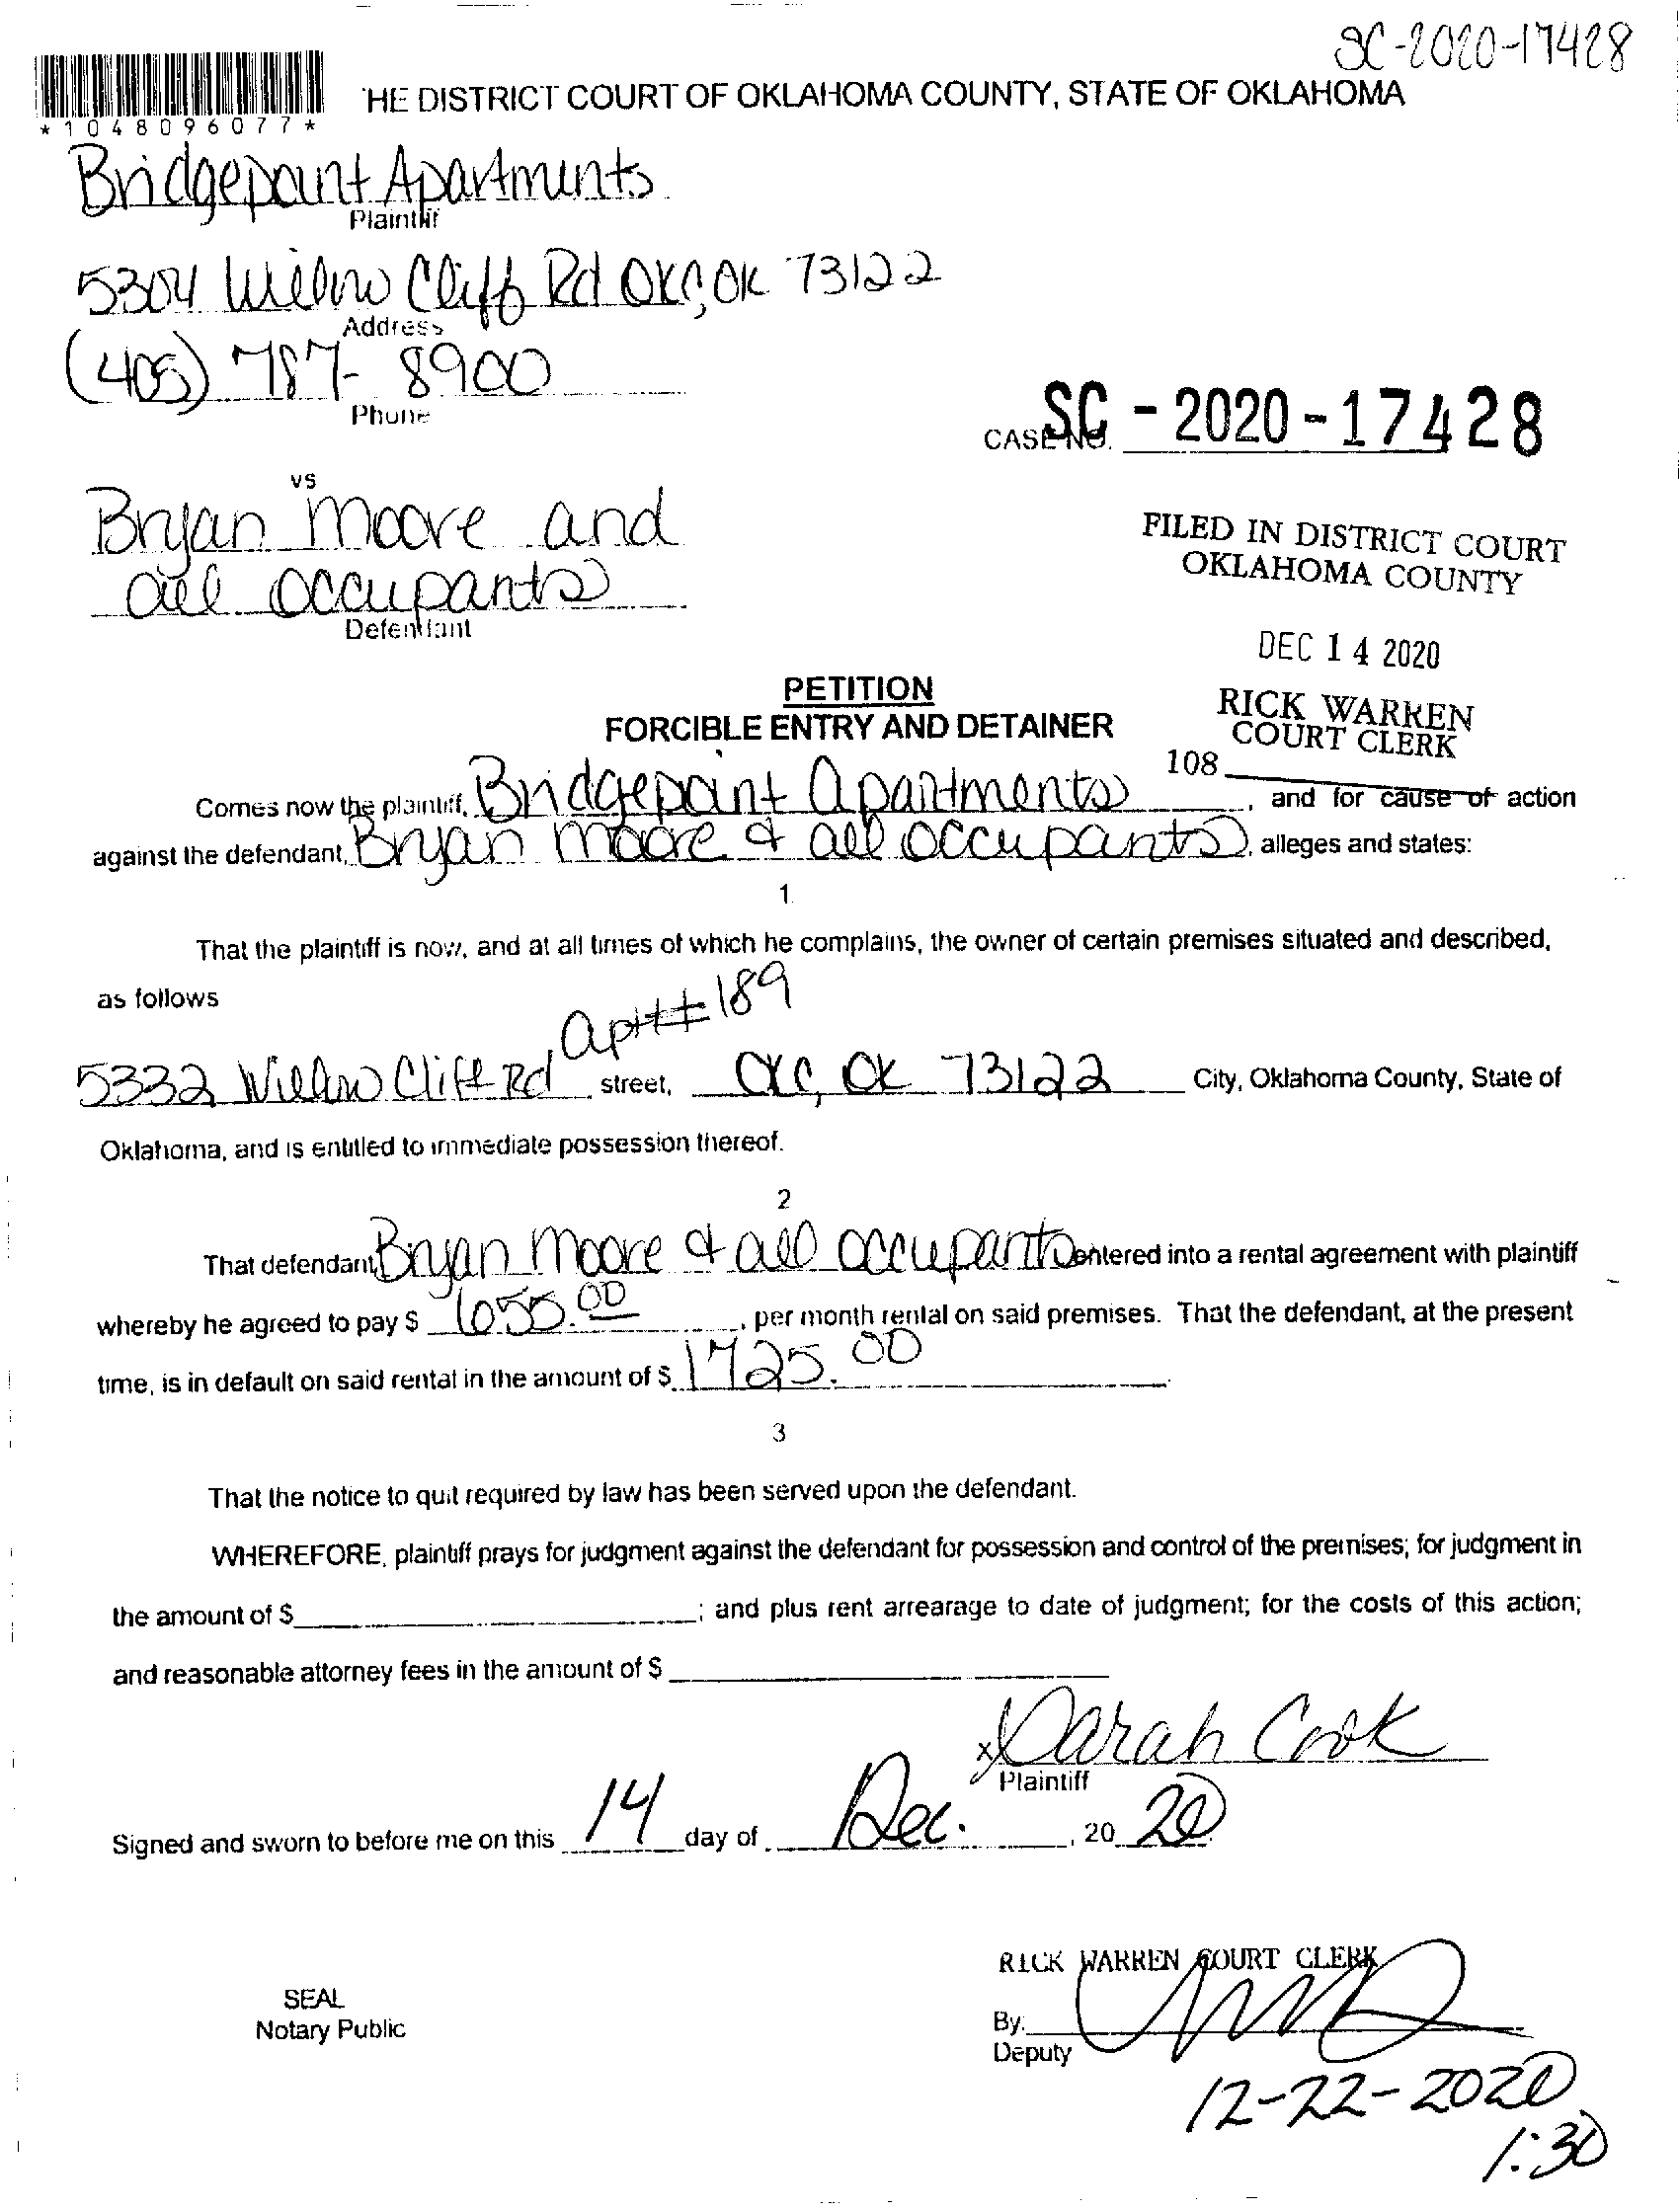 SC-2020-17428
*1048096077*
HE DISTRICT COURT OF OKLAHOMA COUNTY, STATE OF OKLAHOMA
Bridgepoint Apartments
Plaintiff
5304 Willow Cliff Rd OKC, OK 73122
Address
(405) 787-8900
Phone
CASE NO. SC-2020-17428
vs
Bryan Moore and
all occupants
Defendant
FILED IN DISTRICT COURT
OKLAHOMA COUNTY
DEC 14 2020
RICK WARREN
COURT CLERK
108
PETITION
FORCIBLE ENTRY AND DETAINER
Comes now the plaintiff, Bridgepoint Apartments, and for cause of action
against the defendant, Bryan Moore & all occupants, alleges and states:
1.
That the plaintiff is now, and at all times of which he complains, the owner of certain premises situated and described,
as follows
apt# 189
5332 Willow Cliff Rd street, OKC, OK 73122 City, Oklahoma County, State of
Oklahoma, and is entitled to immediate possession thereof.
2
That defendant, Bryan Moore & all occupants entered into a rental agreement with plaintiff
whereby he agreed to pay $ 655.00, per month rental on said premises. That the defendant, at the present
time, is in default on said rental in the amount of $ 1725.00.
3
That the notice to quit required by law has been served upon the defendant.
WHEREFORE, plaintiff prays for judgment against the defendant for possession and control of the premises; for judgment in
the amount of $ ; and plus rent arrearage to date of judgment; for the costs of this action;
and reasonable attorney fees in the amount of $
x Sarah Cook
Plaintiff
Signed and sworn to before me on this 14 day of Dec., 20 20.
RICK WARREN COURT CLERK
SEAL
Notary Public
By:
Deputy
12-22-2020
1:30